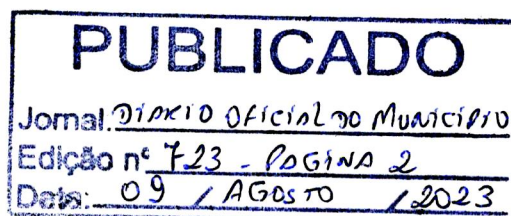 PUBLICADO
Jornal: DIARIO OFICIAL DO MUNICÍPIO
Edição nº 723 - PAGINA 2
Data: 09 / AGOSTO / 2023